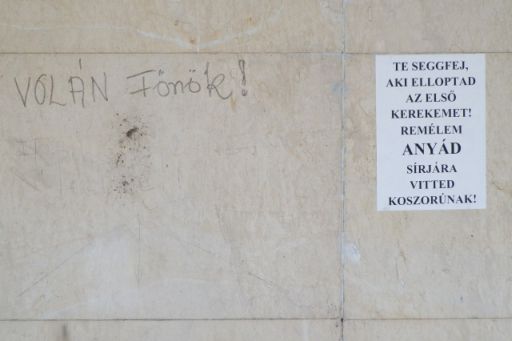 VOLÁN Főnök!
TE SEGGFEJ,
AKI ELLOPTAD
AZ ELSŐ
KEREKEMET!
REMÉLEM
ANYÁD
SÍRJÁRA
VITTED
KOSZORÚNAK!